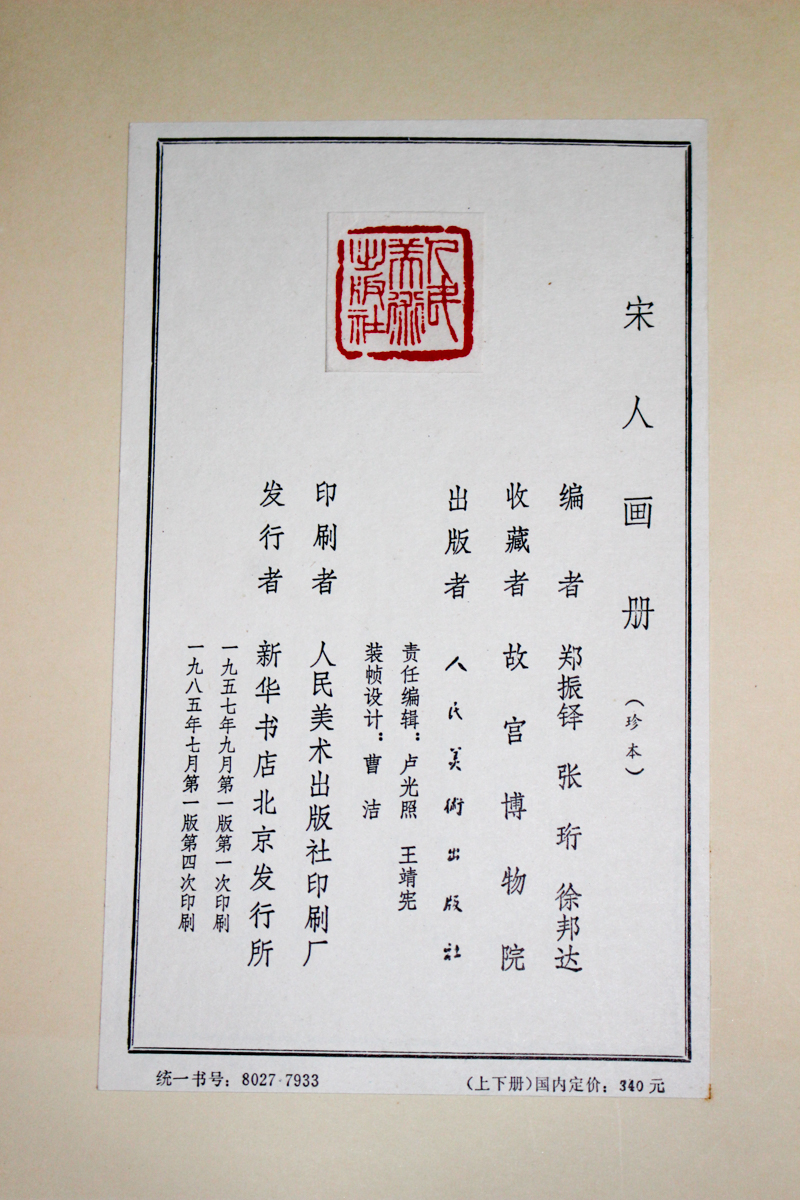 宋人画册（珍本）
编者 郑振铎 张珩 徐邦达
收藏者 故宫博物院
出版者 人民美術出版社
责任编辑：卢光照 王靖宪
装帧设计：曹洁
印刷者 人民美术出版社印刷厂
发行者 新华书店北京发行所
一九五七年九月第一版第一次印刷
一九八五年七月第一版第四次印刷
人民
美術
出版社
统一书号：8027·7933
（上下册）国内定价：340元